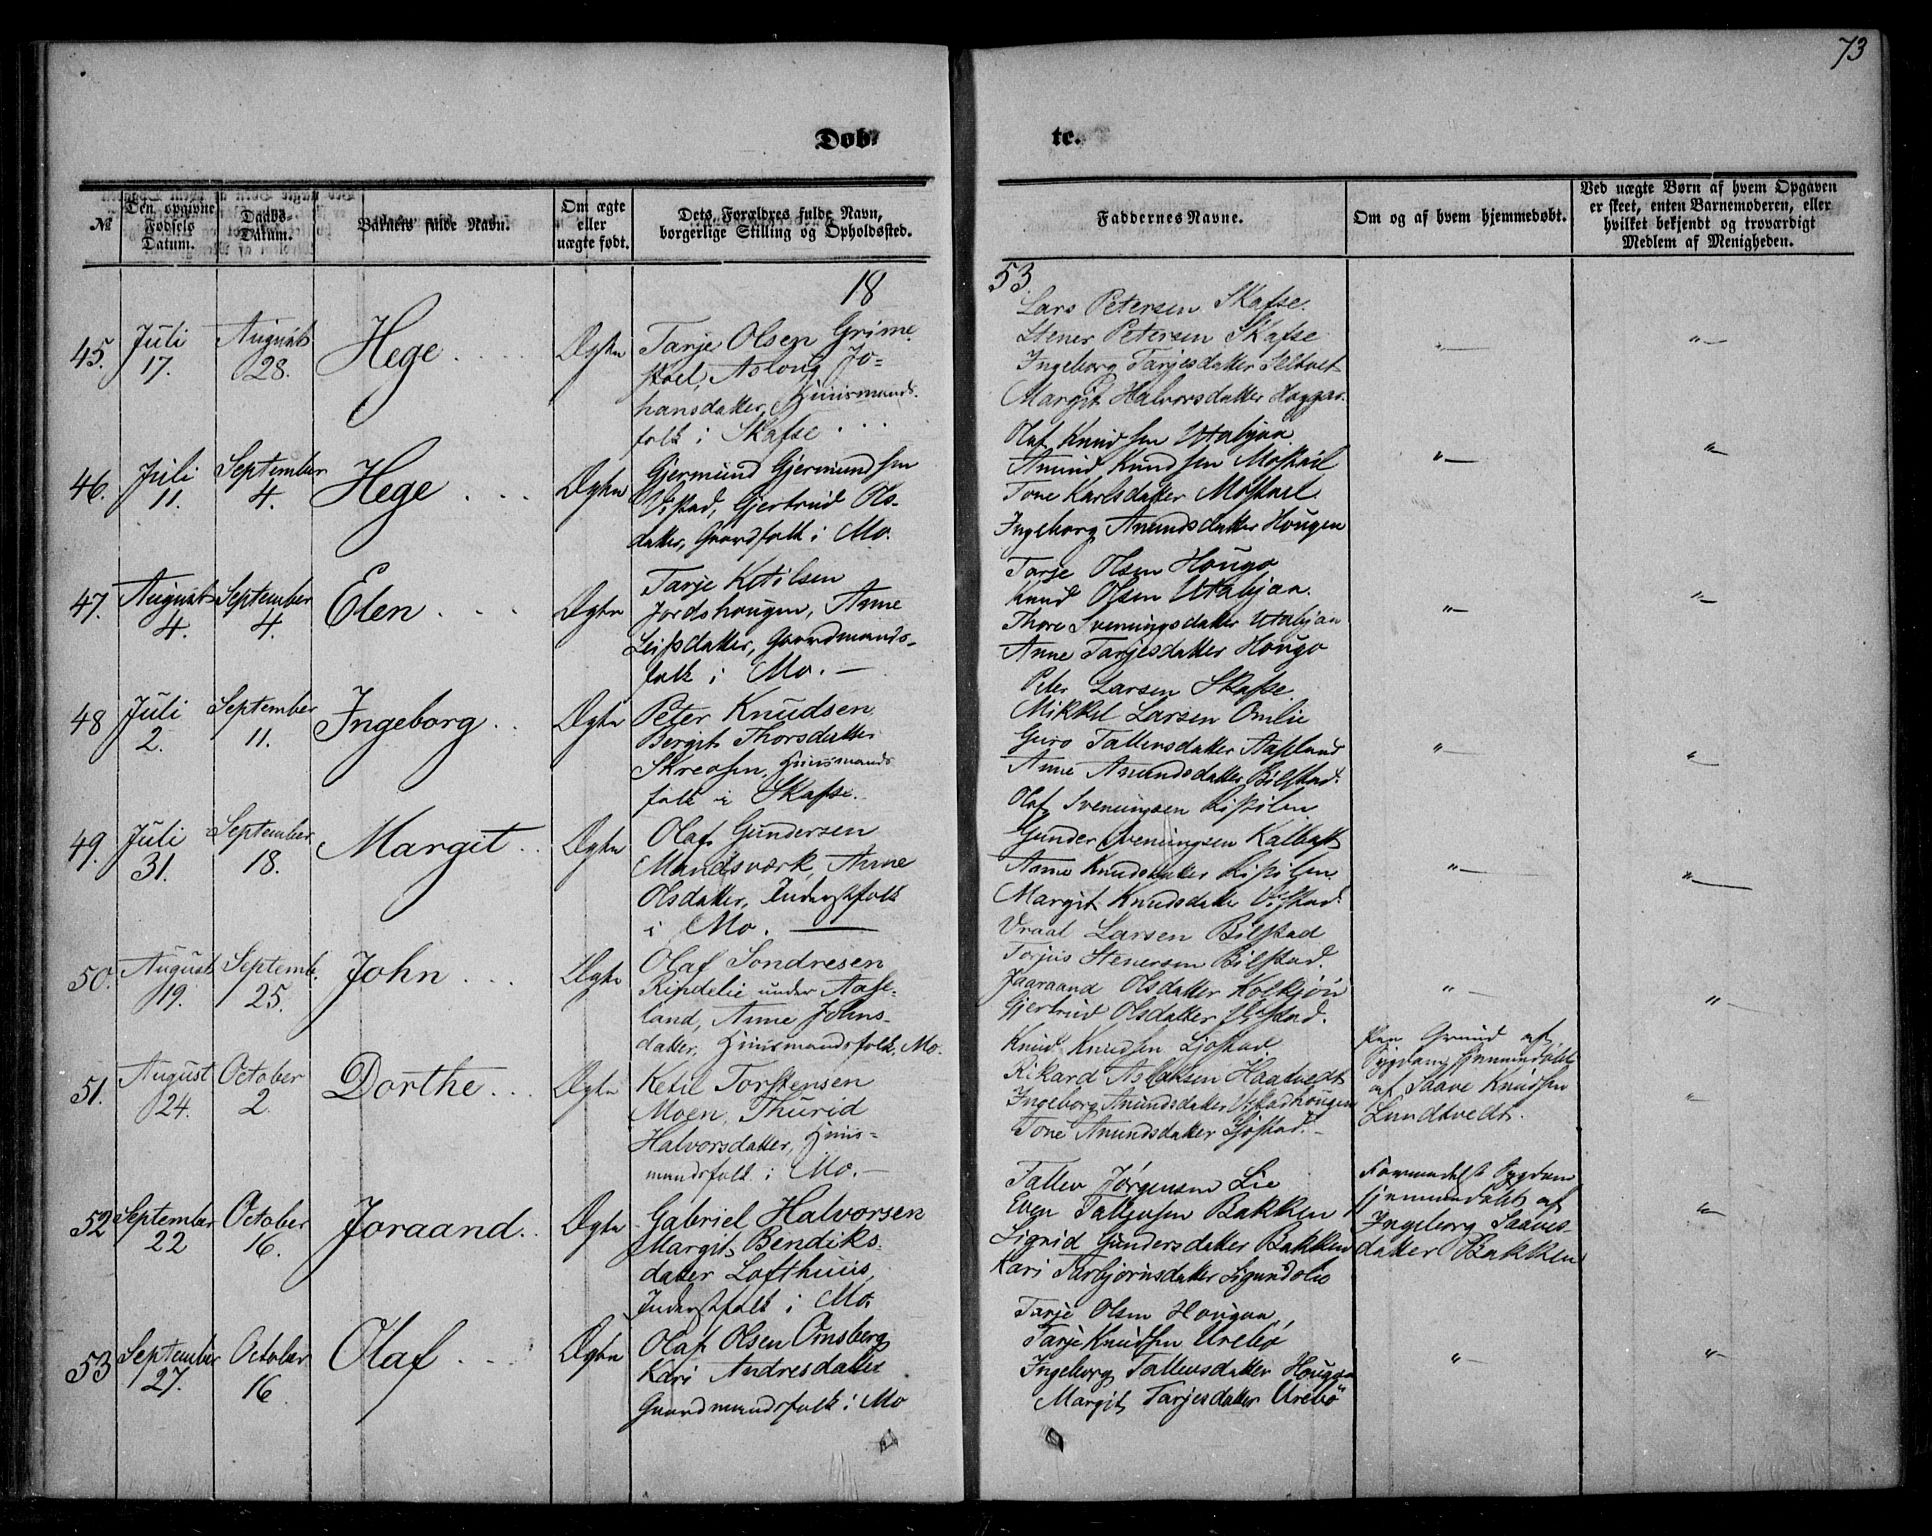 73
Døb-
te.
№
Den opgivne
Fødsels
Datum.
Daabs-
Datum.
Barnets fulde Navn.
Om ægte
eller
uægte født.
Dets Forældres fulde Navn,
borgerlige Stilling og Opholdssted.
Faddernes Navne.
Om og af hvem hjemmedøbt.
Ved uægte Børn af hvem Opgaven
er skeet, enten Barnemoderen, eller
hvilket bekjendt og troværdigt
Medlem af Menigheden.
18
53.
45.
Juli
17.
August
28.
Hege
Ægte
Tarje Olsen Grime
Asloug Jo-
hansdatter, Huusmands-
folk i Skafse
Lars Petersen Skafse.
Stener Petersen Skafse
Ingeborg Tarjesdatter
Margit Halvorsdatter
"—
"—
46.
Juli
11.
September
4.
Hege
Ægte
Gjermund Gjermundsen
Vistad, Gjertrud Ols-
datter, Gaardfolk i Mo.
Olaf Knudsen Utabjaa
Amund Knudsen
Tone Karlsdatter
Ingeborg Anundsdatter Hougen
"—
"—
47.
August
4.
September
4.
Elen
Ægte
Tarje Ketilsen
Jordshougen, Anne
Leifsdatter, Gaardmands-
folk i Mo.—
Tarje Olsen Hougo
Knud Olsen Utabjaa.
Thore Sveningsdatter Utabjaa
Anne Tarjesdatter Hougo
"—
"—
48
Juli
2.
September
11.
Ingeborg
Ægte
Peter Knudsen
Bergit Thorsdatter
Skreosen, Huusmands
folk i Skafse.
Peter Larsen Skafse.
Mikkel Larsen Omlie
Guro Tallevsdatter Aasland
Anne Anundsdatter Bilstad.
"—
"—
49.
Juli
31.
September
18.
Margit
Ægte
Olaf Gundersen
Mandsværk, Anne
Olsdatter, Inderstfolk
i Mo.
Olaf Sveningsen
Gunder Sveningsen
Anne Knudsdatter
Margit Knudsdatter Vistad.
"—
"—
50.
August
19.
Septemb.
25.
John
Ægte
Olaf Sondresen
Rindelie under Aase-
land, Anne Johns-
datter, Huusmandsfolk, Mo.
Vraal Larsen Bilstad
Torjus Stenersen Bilstad.
Jaaraand Olsdatter
Gjertrud Olsdatter Vistad.
"—
"—
51.
August
24.
October
2
Dorthe
Ægte
Ketil Torstensen
Moen, Thurid
Halvorsdatter, Huus-
mandsfolk i Mo.—
Knud Knudsen Ljostad.
Rikard Aslaksen Haatvedt
Ingeborg Anundsdatter Vistadhougen
Tone Anundsdatter Ljostad.—
Paa Grund af
Sygdom hjemmedøbt
af Saave Knudsen
Lundtvedt.
"—
52
September
22
October
16.
Joraand
Ægte
Gabriel Halvorsen
Margit Bendiks-
datter Lofthuus,
Inderstfolk i Mo.
Tallev Jørgensen Lie
Even Tallevsen Bakken
Signid Gundersdatter Bakken
Kari Torbjørnsdatter
Formedelst Sygdom
hjemmedøbt af
Ingeborg Saaves-
datter Bakken
"—
53
September
27.
October
16
Olaf
Ægte
Olaf Olsen Omsberg
Kari Andresdatter
Gaardmandsfolk i Mo
Tarje Olsen Hougaa,
Tarje Knudsen Urebø
Ingeborg Tallevsdatter Hougaa
Margit Tarjesdatter Urebö
"—
"—